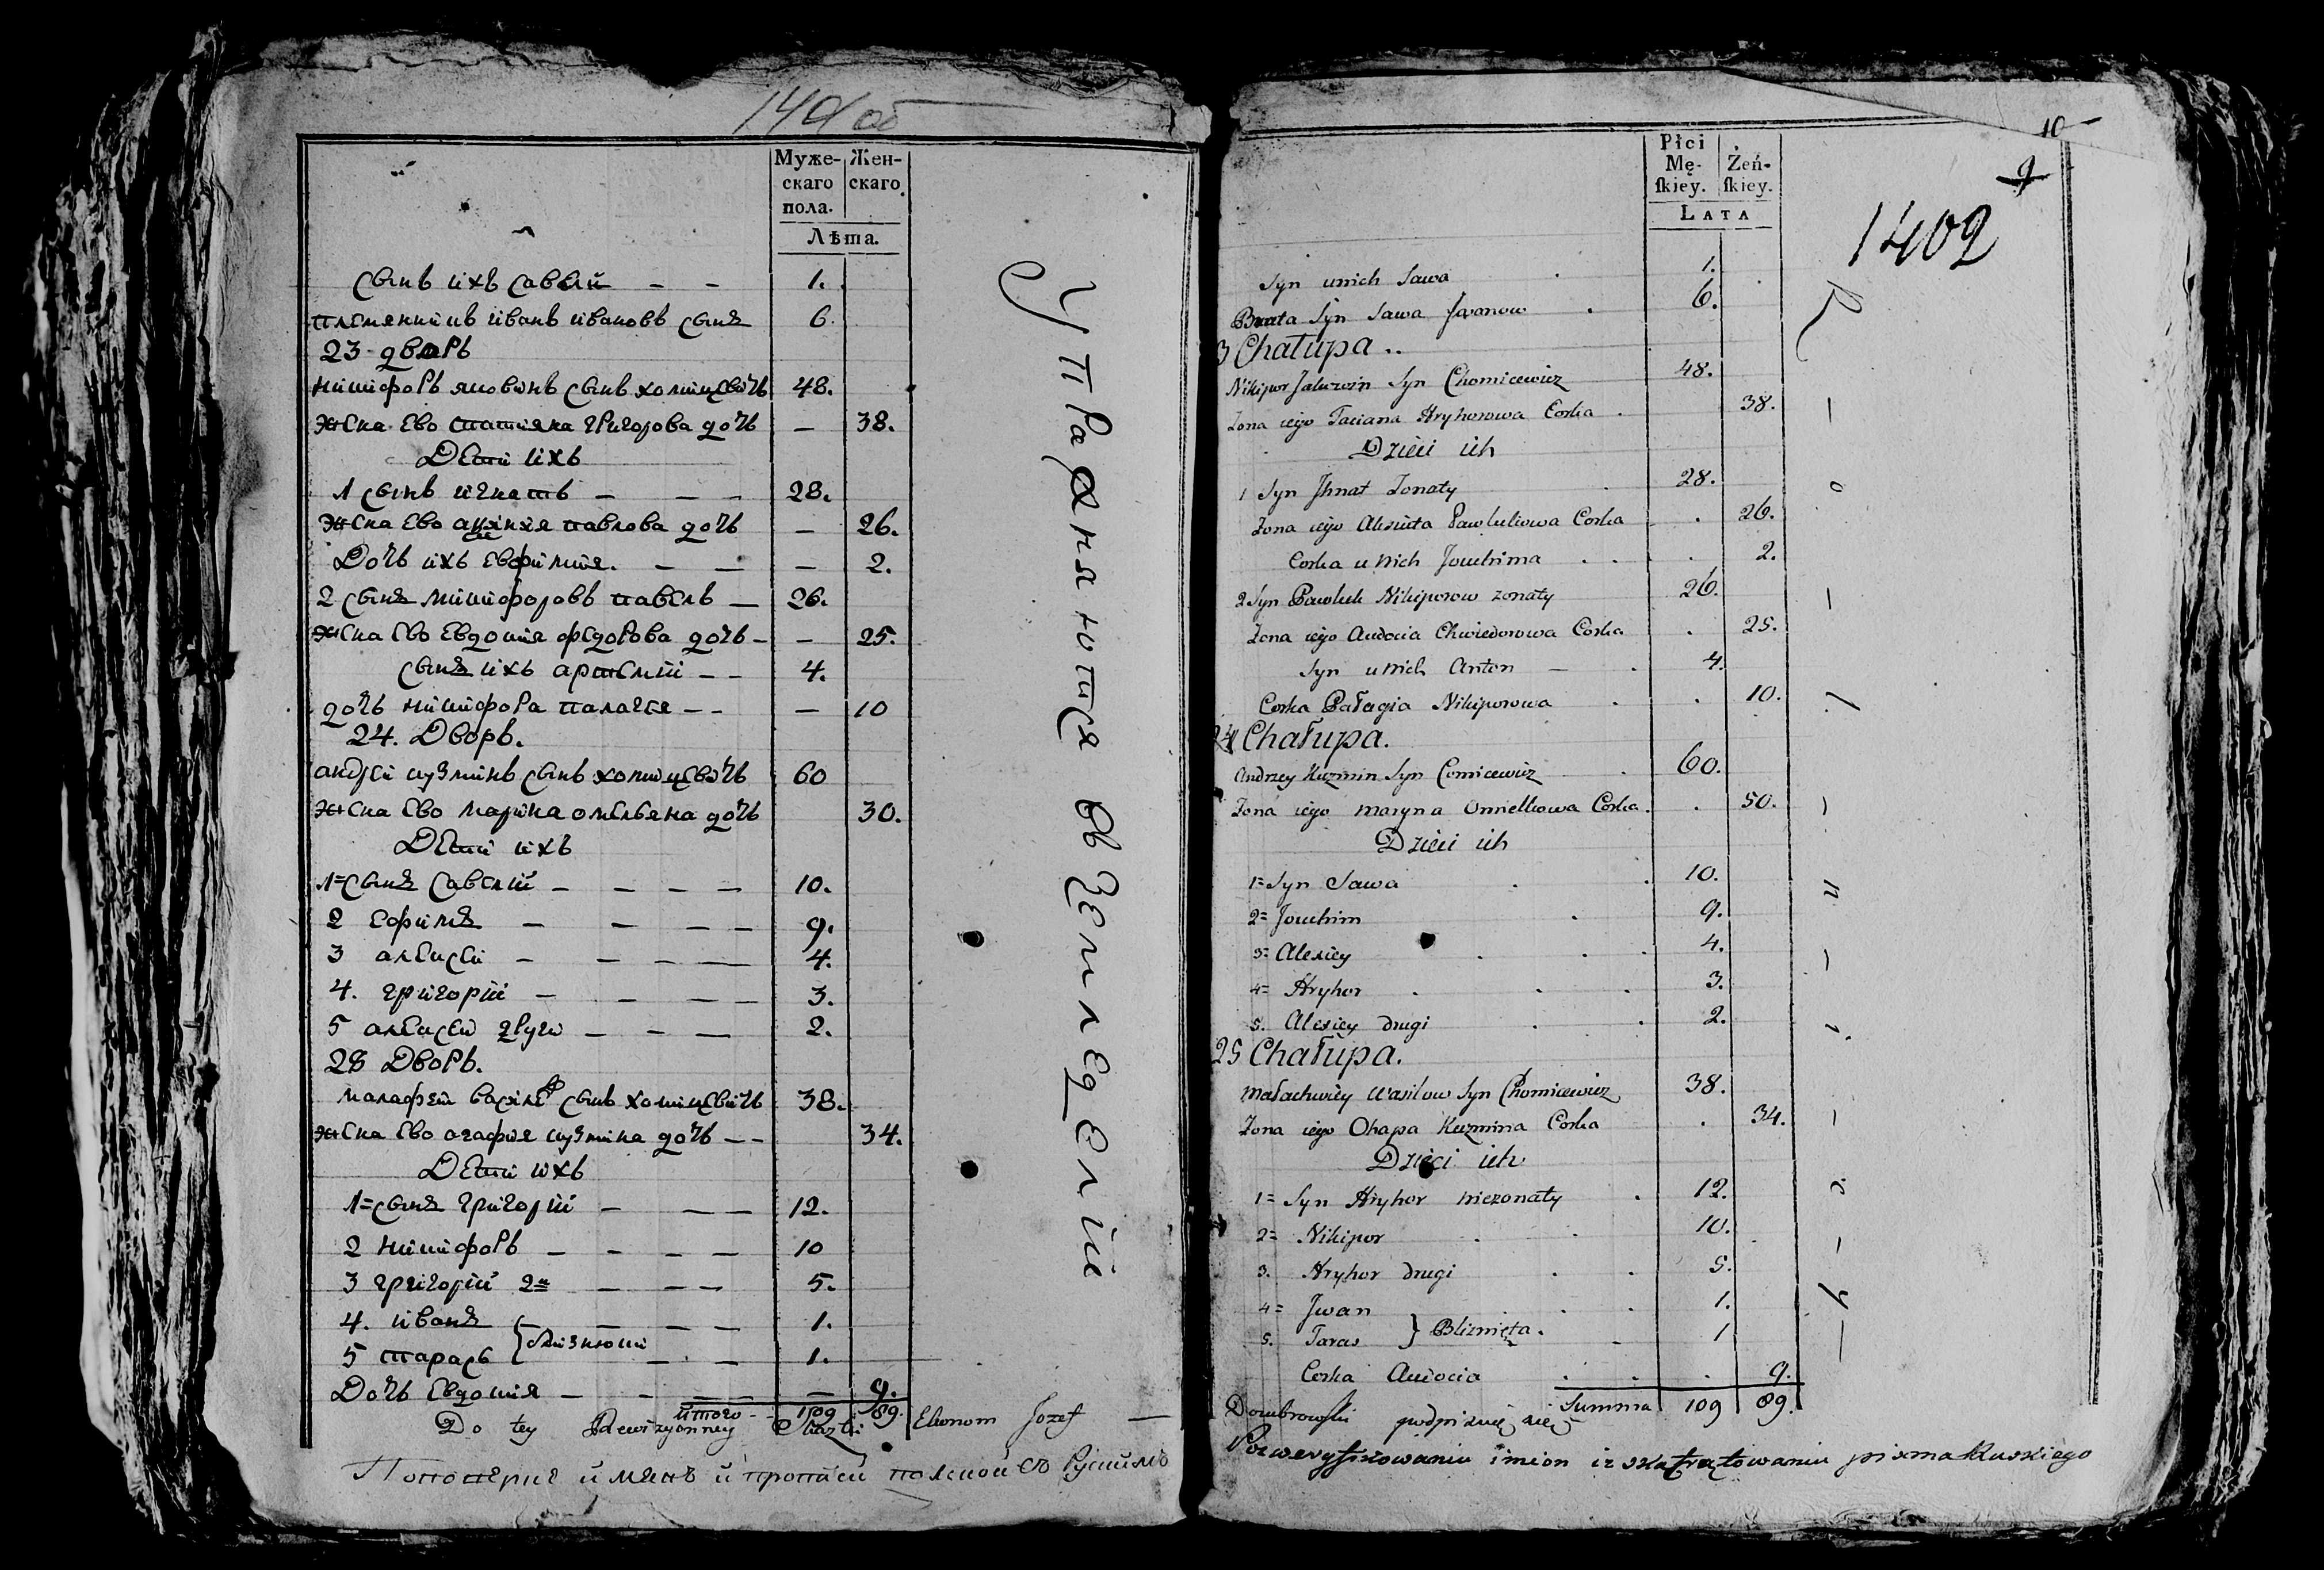 Муже-
скаго
пола.
Жен-
скаго
Лѣта.
сынъ ихъ савелй — — 1.
племянникъ иванъ ивановъ сынъ 6.
23 дворъ
никифоръ яковлнъ сынъ хомицевичъ 48.
жена ево татияна григорова дочь — 38.
Дети ихъ
1 сынъ игнатъ — — — 28.
жена ево павлова дочь — 26.
Дочь ихъ евфимия. — — — 2.
2 сынъ никифоровъ павелъ — 26.
жена ево евдокия федорова дочь — — 25.
сынъ ихъ артемий — — 4.
дочь никифора палагея — — — 10
24. Дворъ.
андрей кузминъ сынъ хомицевичъ 60
жена ево марина омельяна дочь 30.
Дети ихъ
1=сынъ савелий — — — — 10.
2 ефимъ — — — — 9.
3 алексей — — — — 4.
4. григорий — — — — 3.
5 алексей други — — — 2.
25 Дворъ.
малафей василев сынъ хомицевичъ 38.
жена ево агафия кузмина дочь — — 34.
Дети ихъ
1=сынъ григорий — — — 12.
2 никифоръ — — — — 10
3 григорий 2й — — — 5.
4. иванъ — — — — 1.
близнюки
5 тарасъ — — 1.
Дочь евдокия — — — — — 9.
итого - - 109 89.
Do tey Rewizyonney Skazki Ekonom Jozef —
имянъ и полской съ руским
Упражняются въ Земледелии
Płci
Mę-
ſkiey.
Żeń-
ſkiey.
Lata
10
9
1402
Syn unich Sawa 1.
Brata Syn Sawa Jwanow 6.
3 Chałupa..
Nikipor Jakuwin Syn Chomicewicz 48.
Zona iego Taciana Hryhorowa Corka 38.
Dzieci ich
1 Syn Jhnat Zonaty 28.
Zona iego Pawlukowa Corka 26.
Corka u nich Jouchima 2.
2 Syn Pawluk Nikiporow zonaty 26.
Zona iego Audocia Chwiedorowa Corka 25.
Syn unich Anton — 4.
Corka Pałagia Nikiporowa 10.
24 Chałupa.
Andrzey Kuzmin Syn Comicewicz 60.
Zona iego Maryna Omielkowa Corka 50.
Dzieci ich
1= Syn Sawa 10.
2= Jouchim 9.
3= Alexiey 4.
4= Hryhor 3.
5. Alexiey drugi 2.
25 Chałupa.
Małachwiey Wasilow Syn Chomicewicz 38.
Zona iego Ohapa Kuzmina Corka 34.
Dzieci ich
1= Syn Hryhor niezonaty 12.
2= Nikipor 10.
3. Hryhor drugi 5.
4= Jwan 1.
Bliznięta.
5. Taras 1
Corka Audocia 9.
Summa 109 89.
Dombrowski podpisuię się
imion pisma Ruskiego
R — o — l — n — i — c — y —